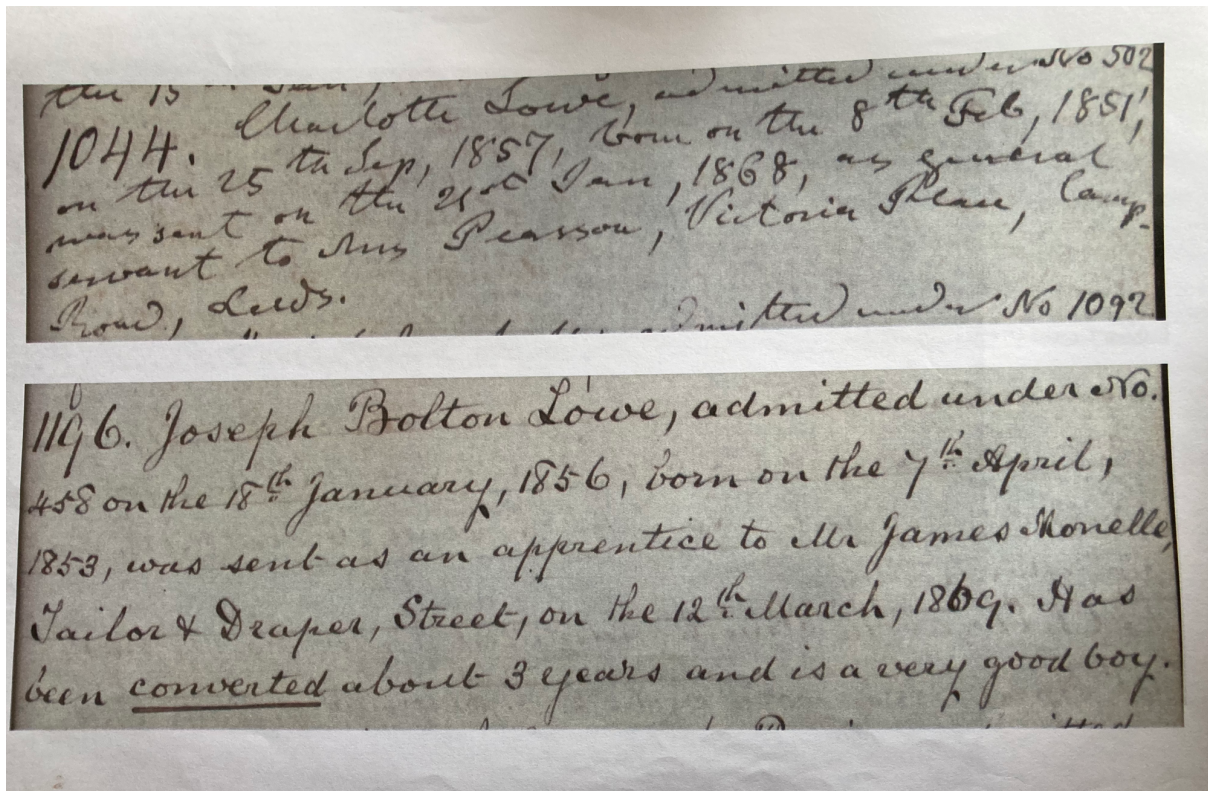 the 15th Jan,
1044. Charlotte Lowe, admitted under No 502
on the 25th Sep, 1857, born on the 8th Feb, 1851,
was sent on the 21st Jan, 1868, as general
servant to Mrs Pearson, Victoria Place, Camp-
Road, Leeds.
admitted under No 1092
1196. Joseph Bolton Lowe, admitted under No.
458 on the 18th January, 1856, born on the 7th April,
1853, was sent as an apprentice to Mr James Monelle,
Tailor & Draper, Street, on the 12th March, 1869. Has
been converted about 3 years and is a very good boy.